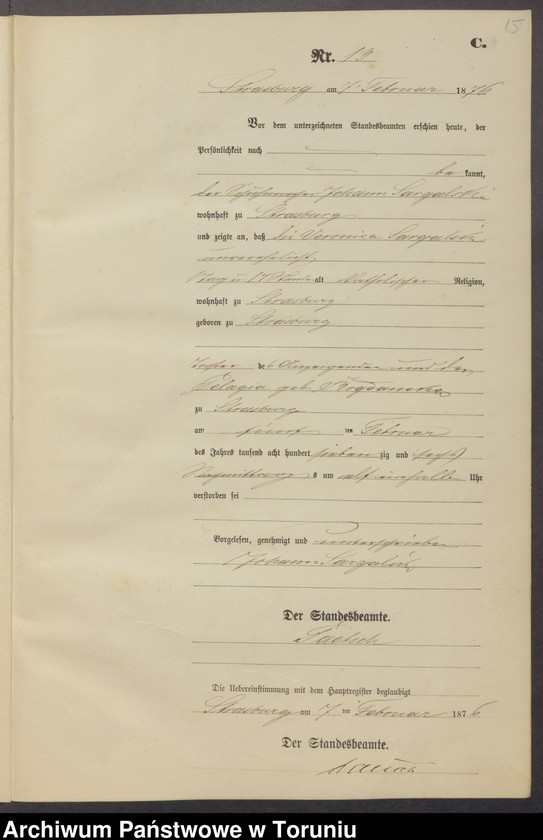 15
C.
Nr. 13
Strasburg am 7 Februar 1876
Vor dem unterzeichneten Standesbeamten erschien heute, der
Persönlichkeit nach
be kannt,
der Johann Sargalski
wohnhaft zu Strasburg
und zeigte an, daß die Veronica Sargalski
unverehelicht
alt katholischer Religion,
wohnhaft zu Strasburg
geboren zu Strasburg
Tochter des Anzeigenden und der
Pelagia geb.
zu Strasburg
am ten Februar
des Jahres tausend acht hundert sieben zig und sechs
Nachmittags um elf einhalb Uhr
verstorben sei
Vorgelesen, genehmigt und unterschrieben
Johann Sargalski
Der Standesbeamte.
Die Uebereinstimmung mit dem Hauptregister beglaubigt
Strasburg am 7 ten Februar 1876
Der Standesbeamte.
Archiwum Państwowe w Toruniu